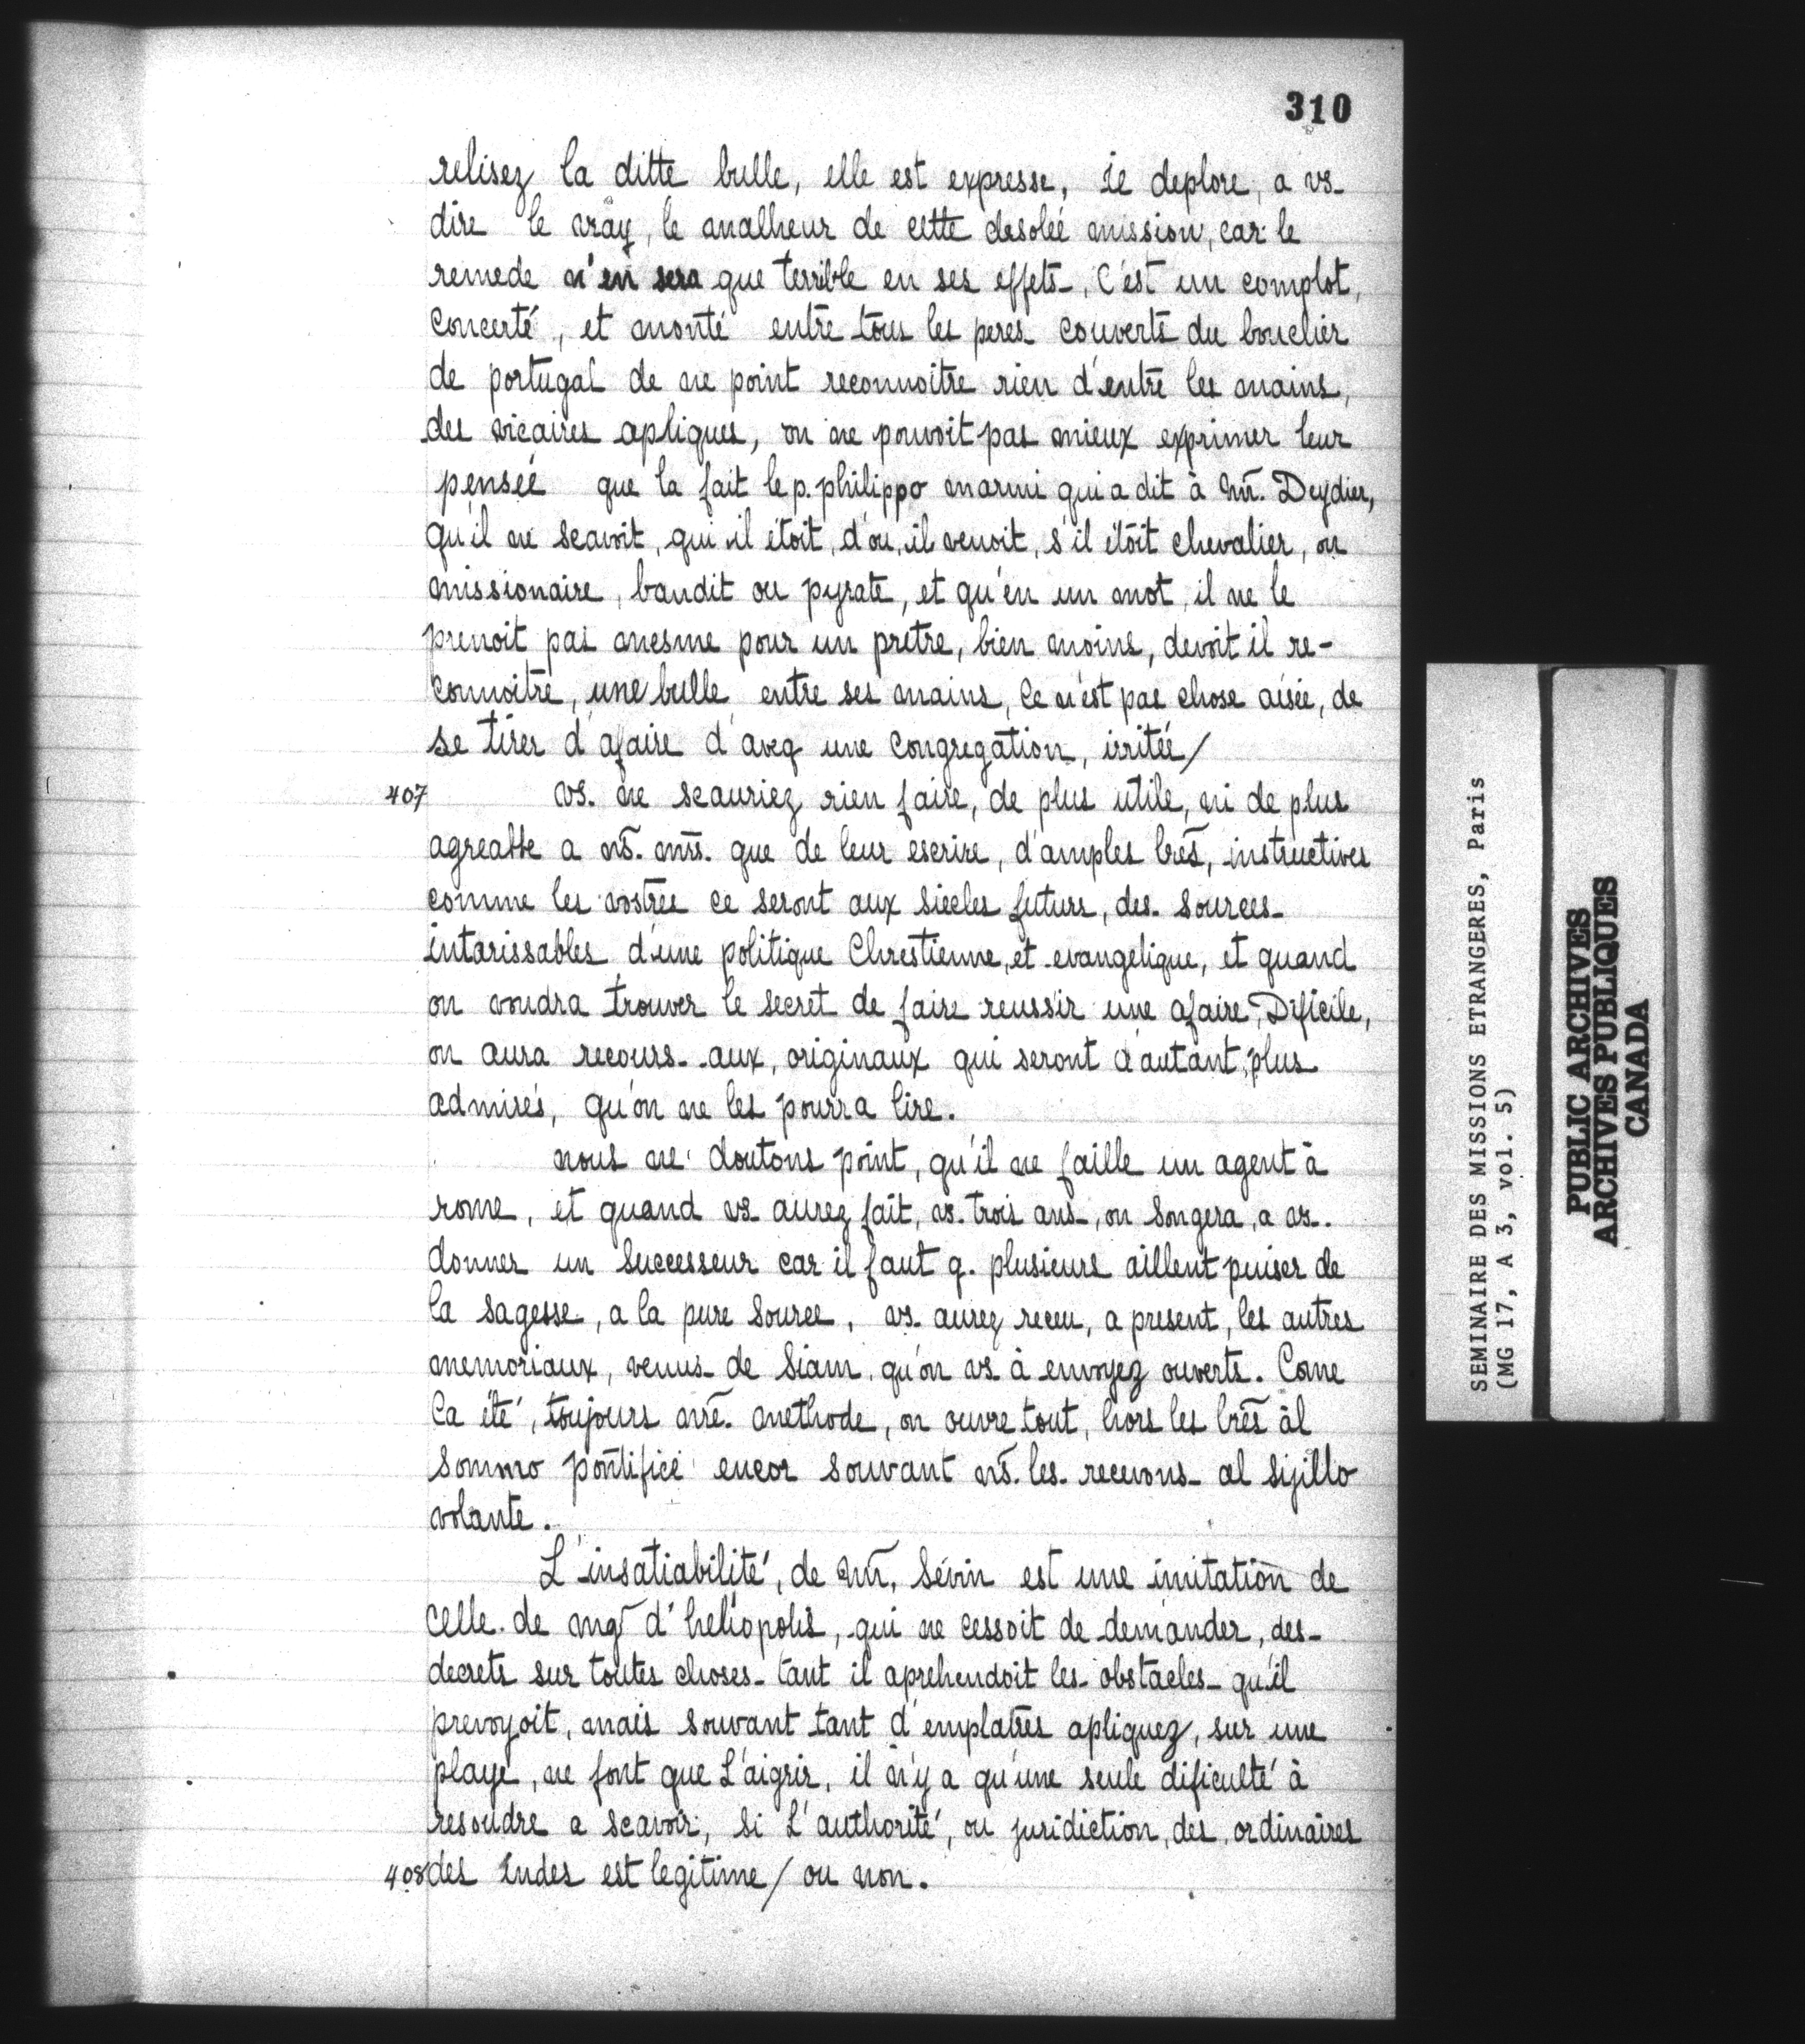 310
relisez la ditte bulle, elle est expresse, ie deplore, a vs.
dire le vray, le malheur de cette desoleé mission, car le
remede n'en sera que terrible en ses effets, c'est un complot,
concerté, et monté entre tous les peres couverts du bouclier
de portugal de ne point reconnoitre rien d'entre les mains,
des vicaires apliques, on ne pouvoit pas mieux exprimer leur
penseé que la fait le p. philippo marini qui a dit à Mr̄. Deydier,
qu'il ne scavoit, qui il étoit, d'ou, il venoit, s'il étoit chevalier, ou
missionaire, bandit ou pyrate, et qu'en un mot, il ne le
prenoit pas mesme pour un prétre, bien moins, devoit il re-
connoitre, une bulle entre ses mains, Ce n'est pas chose aisée, de
se tirer d'afaire d'aveq une congregation, irritée/
407 vs. ne scauriez rien faire, de plus utile, ni de plus
agreable a ns̄. mrs̄. que de leur escrire, d'amples lrēs, instructives
comme les vostres ce seront aux siecles futurs, des sources
intarissables d'une politique Chrestienne, et evangelique, et quand
on voudra trouver le secret de faire reussir une afaire, Dificile,
on aura recours aux, originaux qui seront d'autant, plus
admirés, qu'on ne les pourra lire.
nous ne doutons point, qu'il ne faille un agent à
rome, et quand vs aurez fait, vs. trois ans, on songera, a vs.
donner un Successeur car il faut q. plusieurs aillent puiser de
la sagesse, a la pure source, vs. aurez receu, a present, les autres
memoriaux, venus de Siam, qu'on vs à envoyez ouverts. Come
ça été, toujours nrē. methode, on ouvre tout, hors les lrēs àl
Sommo pontificé encor souvant ns̄. les recevons al sijillo
volante.
L'insatiabilité, de Mr̄. Sévin est une imitation de
celle de mgr̄ d'heliopolis, qui ne cessoit de demander, des
decrets sur toutes choses tant il aprehendoit les obstacles qu'il
prevoyoit, mais souvant tant d'emplatres apliquez, sur une
playe, ne font que L'aigrir, il n'y a qu'une seule dificulté à
resoudre a scavoir, si L'authorité, ou juridiction, des ordinaires
408 des Indes est legitime/ ou non.
SEMINAIRE DES MISSIONS ETRANGERES, Paris
(MG 17, A 3, vol. 5)
PUBLIC ARCHIVES
ARCHIVES PUBLIQUES
CANADA